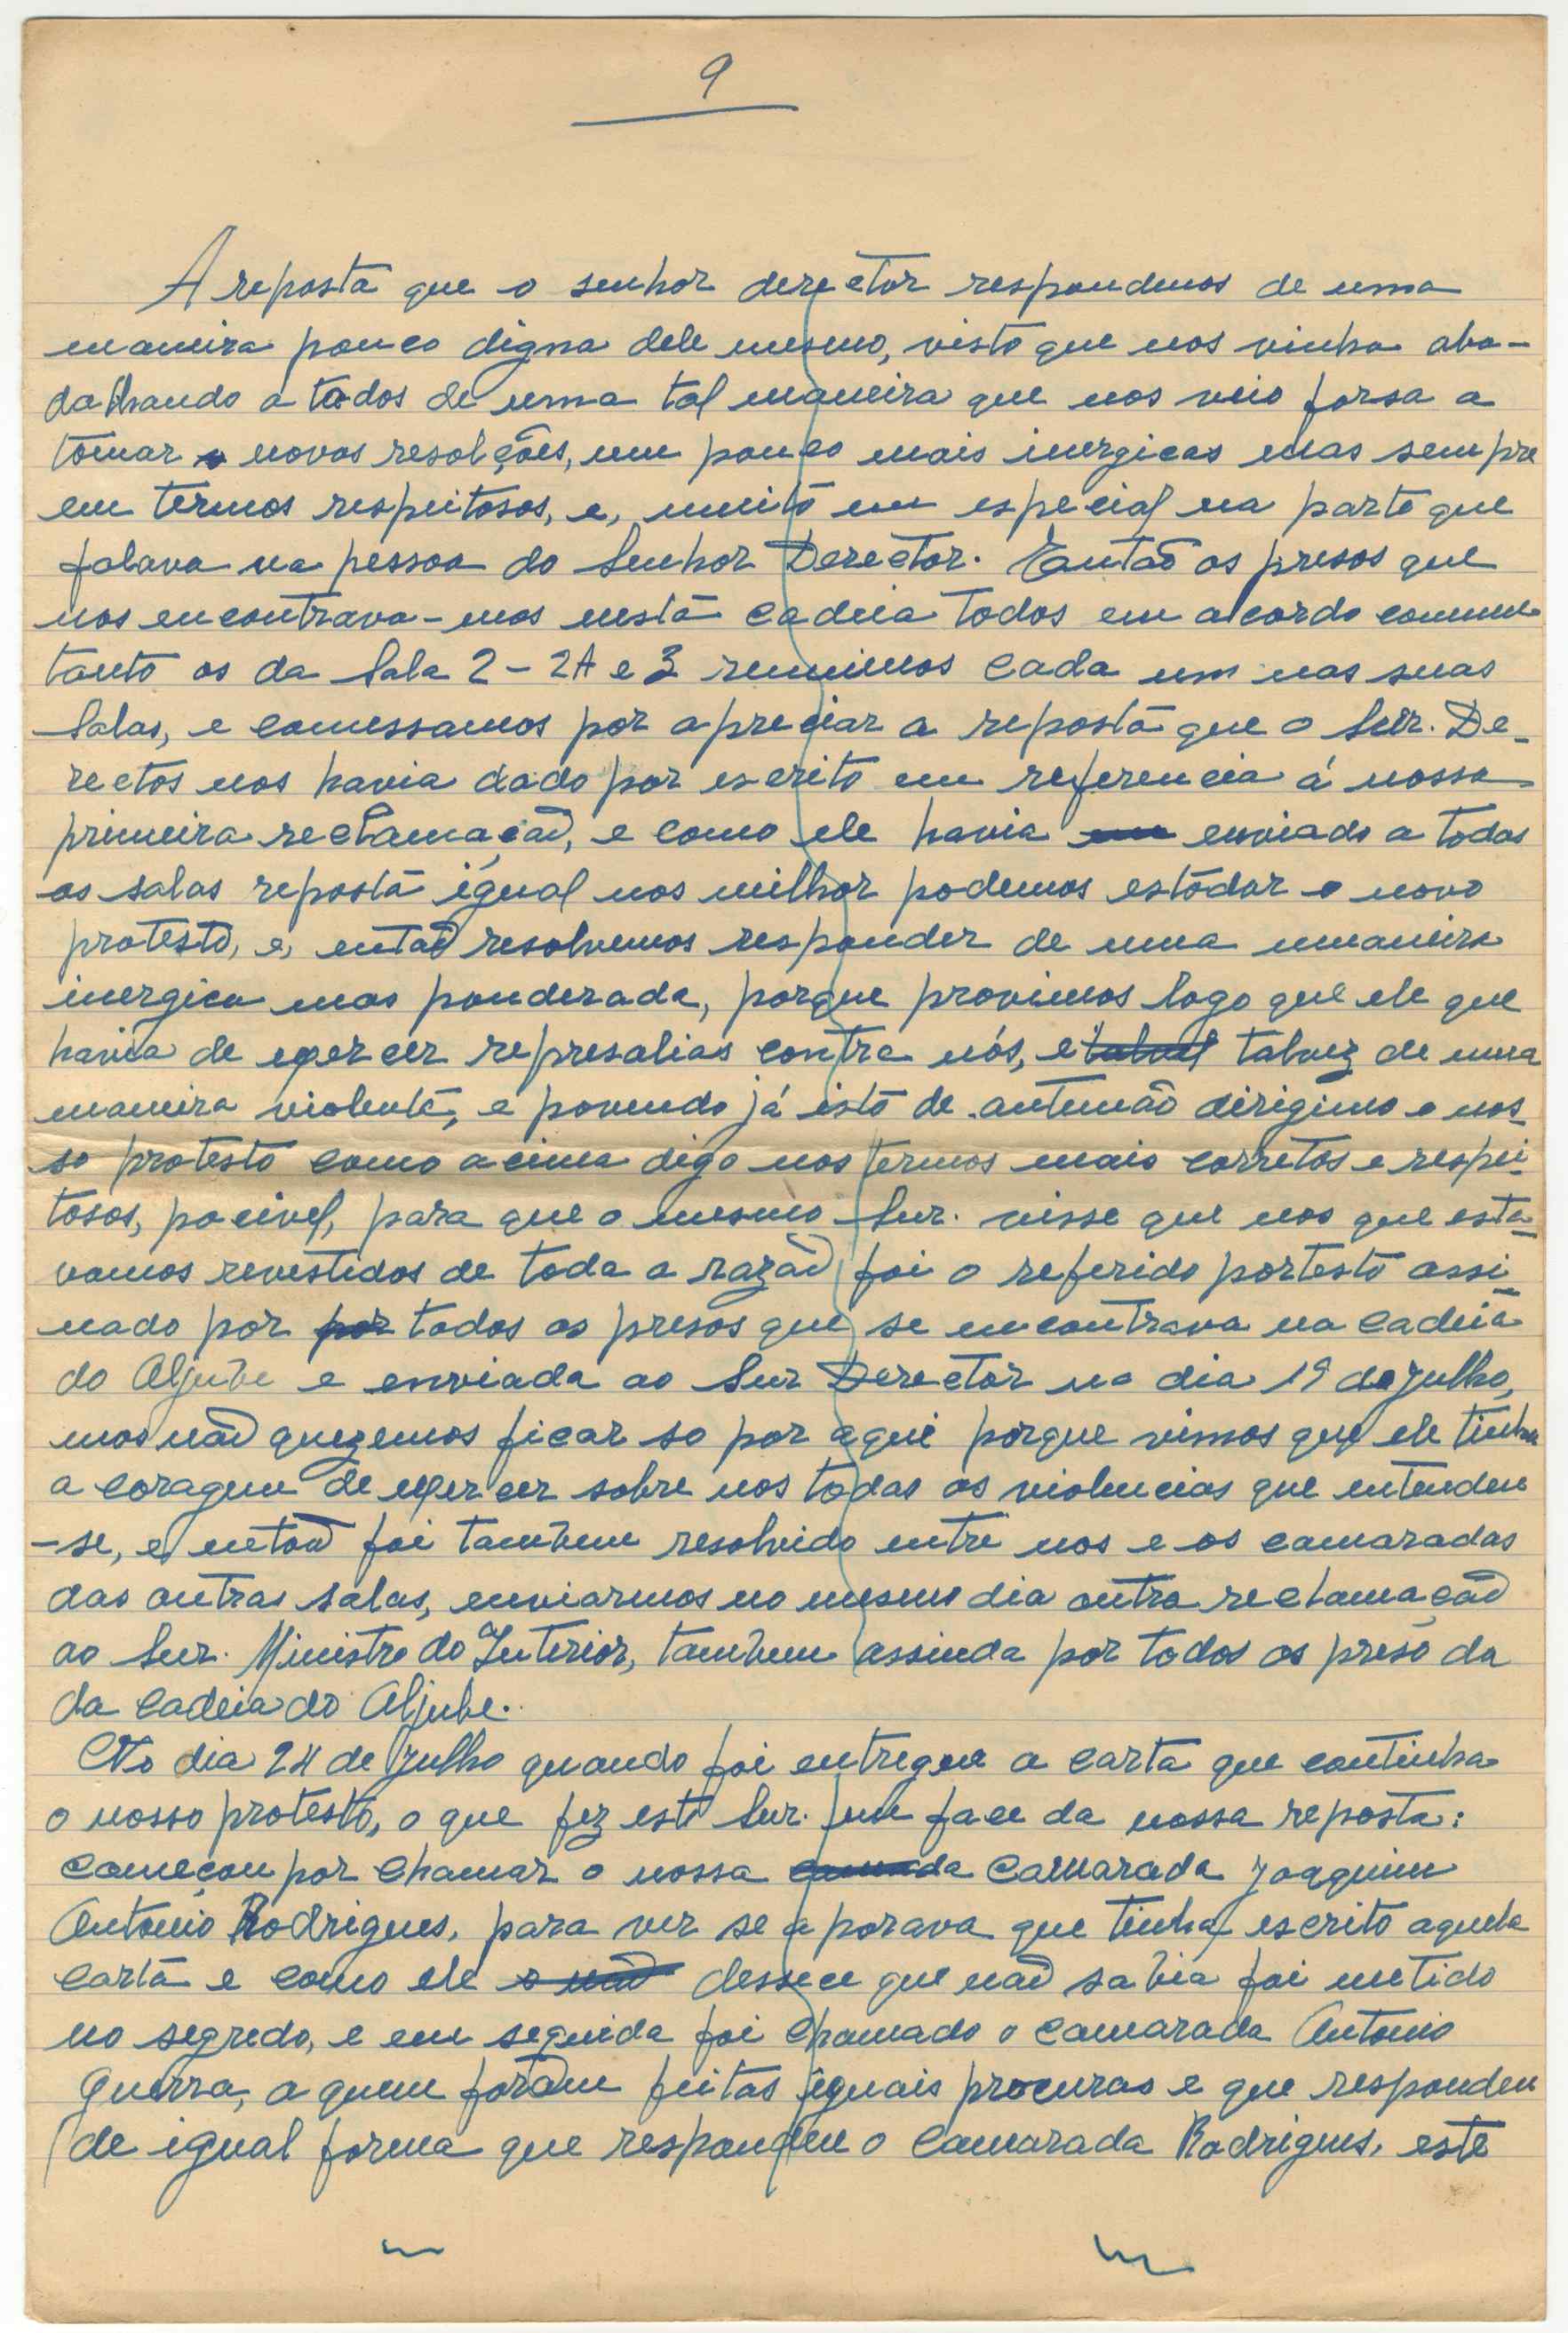 9
A reposta que o senhor derector respondenos de uma
maneira pouco digna dele mesmo, visto que nos vinha aba-
dalhando a todos de uma tal maneira que nos veio forsa a
tomar novas resolções, um pouco mais inergicas mas sempre
em termos respeitosos, e, muito em especial na parte que
falava na pessoa do Senhor Derector. Então os presos que
nos encontrava-mos nesta cadeia todos em acordo comum
tanto os da Sala 2 - 2A e 3 reunimos cada um nas suas
Salas, e comessamos por apreciar a reposta que o Snr. De-
rectos nos havia dado por escrito em referencia á nossa
primeira reclamação, e como ele havia enviado a todas
as salas reposta igual nos milhor podemos estodar o novo
protesto, e, então resolvemos responder de uma emaneira
inergica mas ponderada, porque provimos logo que ele que
havia de exercer represalias contra nós, e talvez de uma
maneira violenta, e povendo já isto de antemão dirigimo o nos-
so protesto como acima digo nos termos mais corretos e respei-
tosos, pocivel, para que o mesmo Snr. visse que nos que esta-
vamos revestidos de toda a razão foi o referido portesto assi-
nado por por todos os presos que se encontrava na cadeia
do Aljube e enviada ao Snr Derector no dia 19 de Julho,
mas não quezemos ficar so por aqui porque vimos que ele tinha
a coragem de exercer sobre nos todas as violencias que entendeu
-se, e, então foi tambem resolvido entre nos e os camaradas
das outras salas, enviarmos no mesmo dia outra reclamação
ao Snr. Ministro do Interior, tambem assinda por todos os preso da
da Cadeia do Aljube.
No dia 24 de Julho quando foi entregue a carta que continha
o nosso protesto, o que fez este Snr. em face da nossa reposta:
começou por chamar o nossa camarada Joaquim
Antonio Rodrigues, para ver se aporava que tinha escrito aquela
carta e como ele o não dessece que não sabia foi metido
no segredo, e em seguida foi chamado o camarada Antonio
Guerra, a quem foram feitas iguais procuras e que respondeu
de igual forma que respondeu o Camarada Rodrigues, este